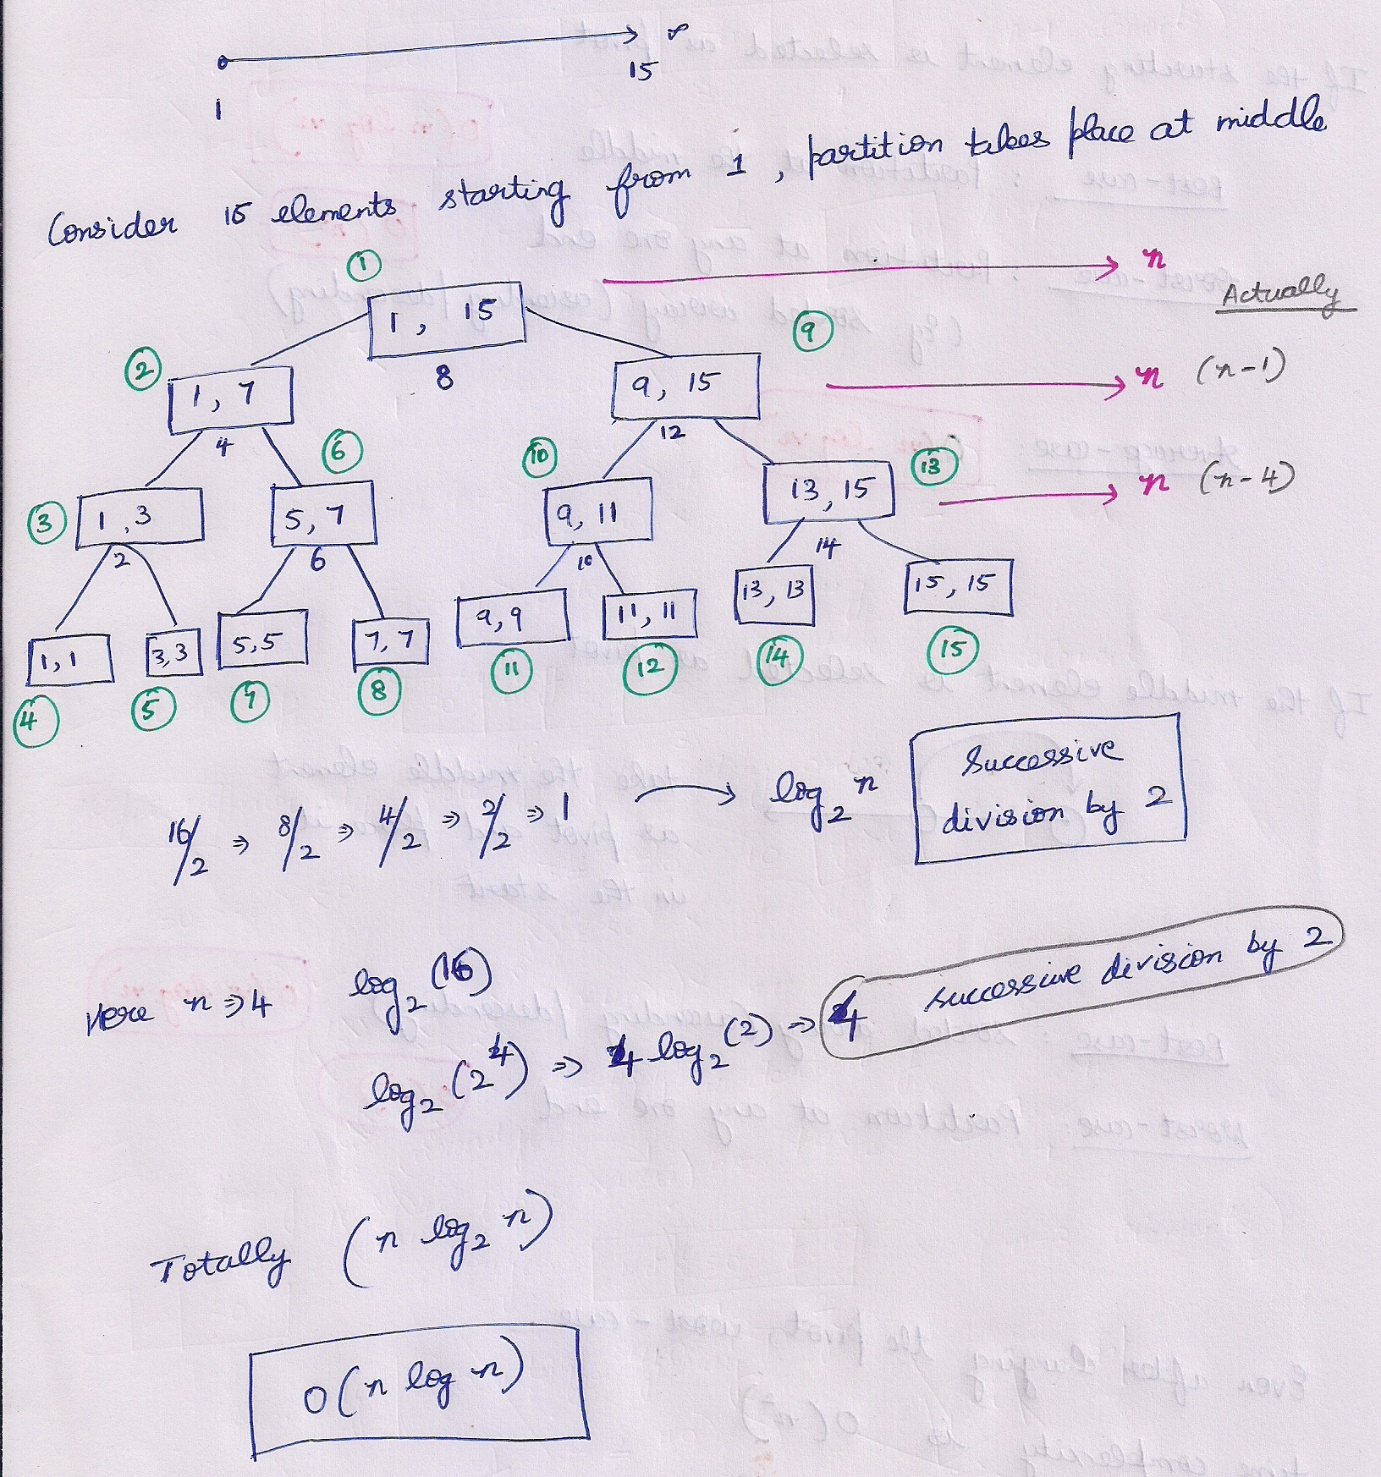 ∞
1 15
Consider 15 elements starting from 1, partition takes place at middle
① n
1, 15 Actually
8
② ⑨
1, 7 9, 15 n (n-1)
4 12
⑥ ⑩ ⑬
③ 1, 3 5, 7 9, 11 13, 15 n (n-4)
2 6 10 14
1,1 3,3 5,5 7,7 9,9 11, 11 13, 13 15, 15
④ ⑤ ⑦ ⑧ ⑪ ⑫ ⑭ ⑮
16/2 ⇒ 8/2 ⇒ 4/2 ⇒ 2/2 ⇒ 1 → log₂ n
Successive
division by 2
Here n ⇒ 4 log₂(16)
log₂(2⁴) ⇒ 4 log₂(2) ⇒ 4 successive division by 2
Totally (n log₂ n)
O(n log n)